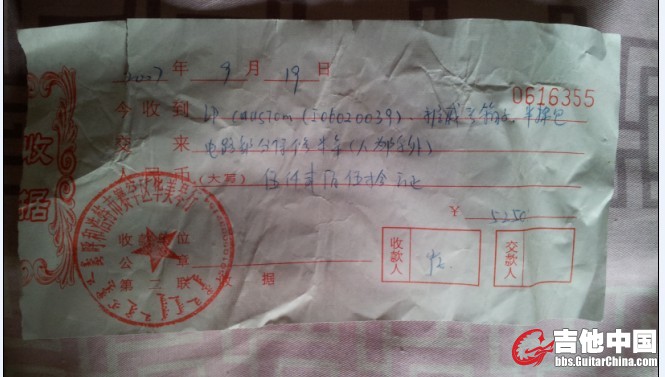 2007年9月19日
0616355
今收到 LP custom (I06020039)
交来 电路部分保修半年(人为除外)
人民币(大写) 伍仟贰佰伍拾元正
¥ 5250
收款单位
公章
收款人
交款人
第二联 收据
收据
吉他中国
bbs.GuitarChina.com